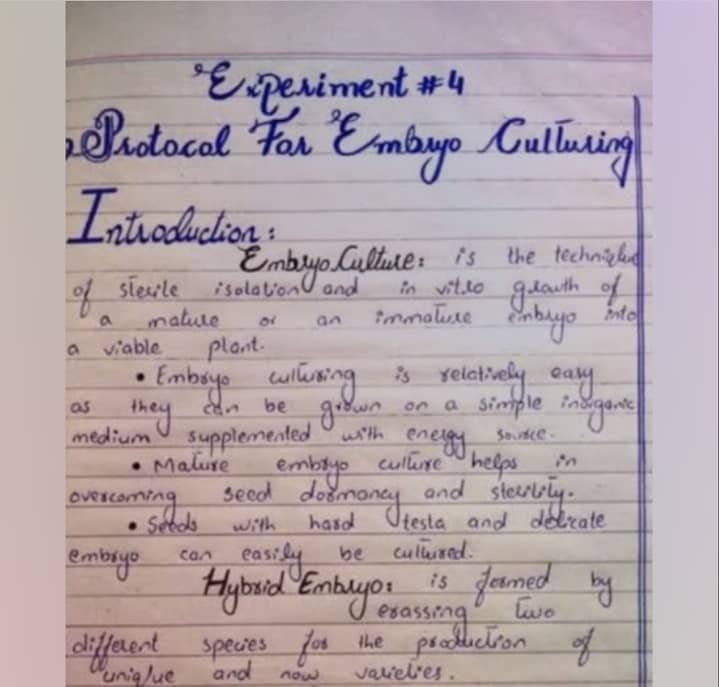 Experiment #4
Protocal For Embryo Culturing
Introduction:
Embryo Culture: is the technique
of sterile isolation and in vitro growth of
a mature or an immature embryo into
a viable plant.
• Embryo culturing is relatively easy
as they can be grown on a simple inorganic
medium supplemented with energy source.
• Mature embryo culture helps in
overcoming seed dormancy and sterility.
• Seeds with hard testa and delicate
embryo can easily be cultured.
Hybrid Embryo: is formed by
crossing two
different species for the production of
unique and now varieties.